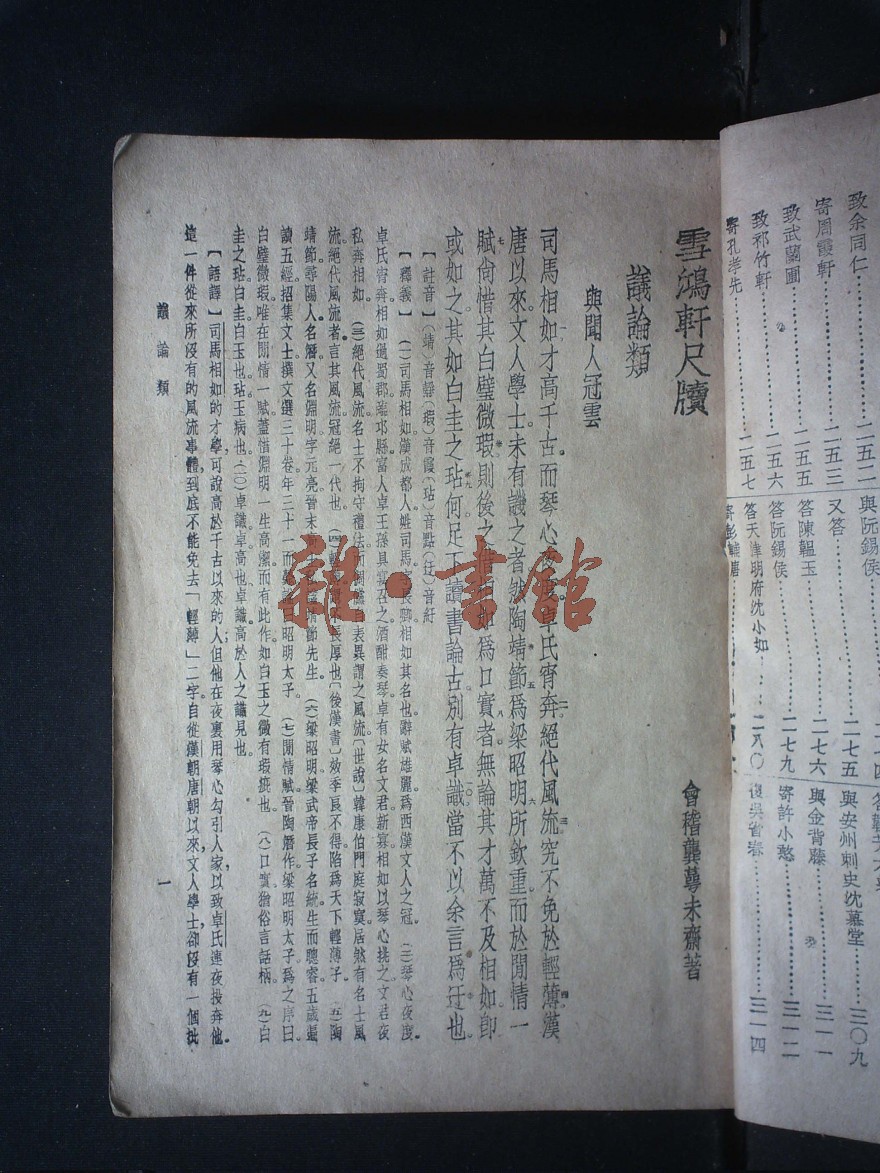 致余同仁⋯⋯⋯⋯二五二
寄周霞軒⋯⋯⋯⋯二五三
致武蘭圃⋯⋯⋯⋯二五五
致祁竹軒⋯⋯⋯⋯二五六
寄孔孝先⋯⋯⋯⋯二五七
與阮錫侯
又答⋯⋯⋯⋯二七五
答陳韞玉⋯⋯⋯⋯二七六
答阮錫侯⋯⋯⋯⋯二七九
答天津明府沈小如⋯⋯二八〇
與安州刺史沈慕堂⋯⋯三〇九
與金背藤⋯⋯⋯⋯三一一
寄許小憨⋯⋯⋯⋯三一二
復吳省春⋯⋯⋯⋯三一四
雪鴻軒尺牘
會稽龔萼未齋著
議論類
與聞人冠雲
司馬相如才高千古而琴心夜度卓氏宵奔絕代風流究不免於輕薄漢
唐以來文人學士未有譏之者然陶靖節爲梁昭明所欽重而於閒情一
賦尙惜其白璧微瑕則後之借相如爲口實者無論其才萬不及相如卽
或如之其如白圭之玷何足下讀書論古別有卓識當不以余言爲迂也
【註音】(靖)音靜(瑕)音霞(玷)音點(迂)音紆
【釋義】(一)司馬相如漢成都人姓司馬字長卿相如其名也辭賦雄麗爲西漢文人之冠。(二)琴心夜度
卓氏宵奔相如過蜀郡臨邛縣富人卓王孫具宴召之酒酣奏琴卓有女名文君新寡相如以琴心挑之文君夜
私奔相如。(三)絕代風流名士不拘守禮法而自表異謂之風流〔世說〕韓康伯門庭寂寞居然有名士風
流絕代風流者言其風流冠絕一代也。(四)輕薄不長厚也〔後漢書〕效季良不得陷爲天下輕薄子。(五)陶
靖節尋陽人名潛又名淵明字元亮晉末靖節先生。(六)梁昭明梁武帝長子名統生而聰睿五歲徧
讀五經招集文士撰文選三十卷年三十一而昭明太子。(七)閒情賦晉陶潛作梁昭明太子爲之序曰
白璧微瑕唯在閒情一賦蓋惜淵明一生高潔而有此作如白玉之微有瑕疵也。(八)口實猶俗言話柄。(九)白
圭之玷白圭白玉也玷玉病也。(一〇)卓識卓高也卓識高於人之識見也。
【語譯】司馬相如的才學可說高於千古以來的人但他在夜裏用琴心勾引人家以致卓氏連夜投奔他。
這一件從來所沒有的風流事體到底不能免去「輕薄」二字自從漢朝唐朝以來文人學士卻沒有一個批
議論類
一
雜·書館